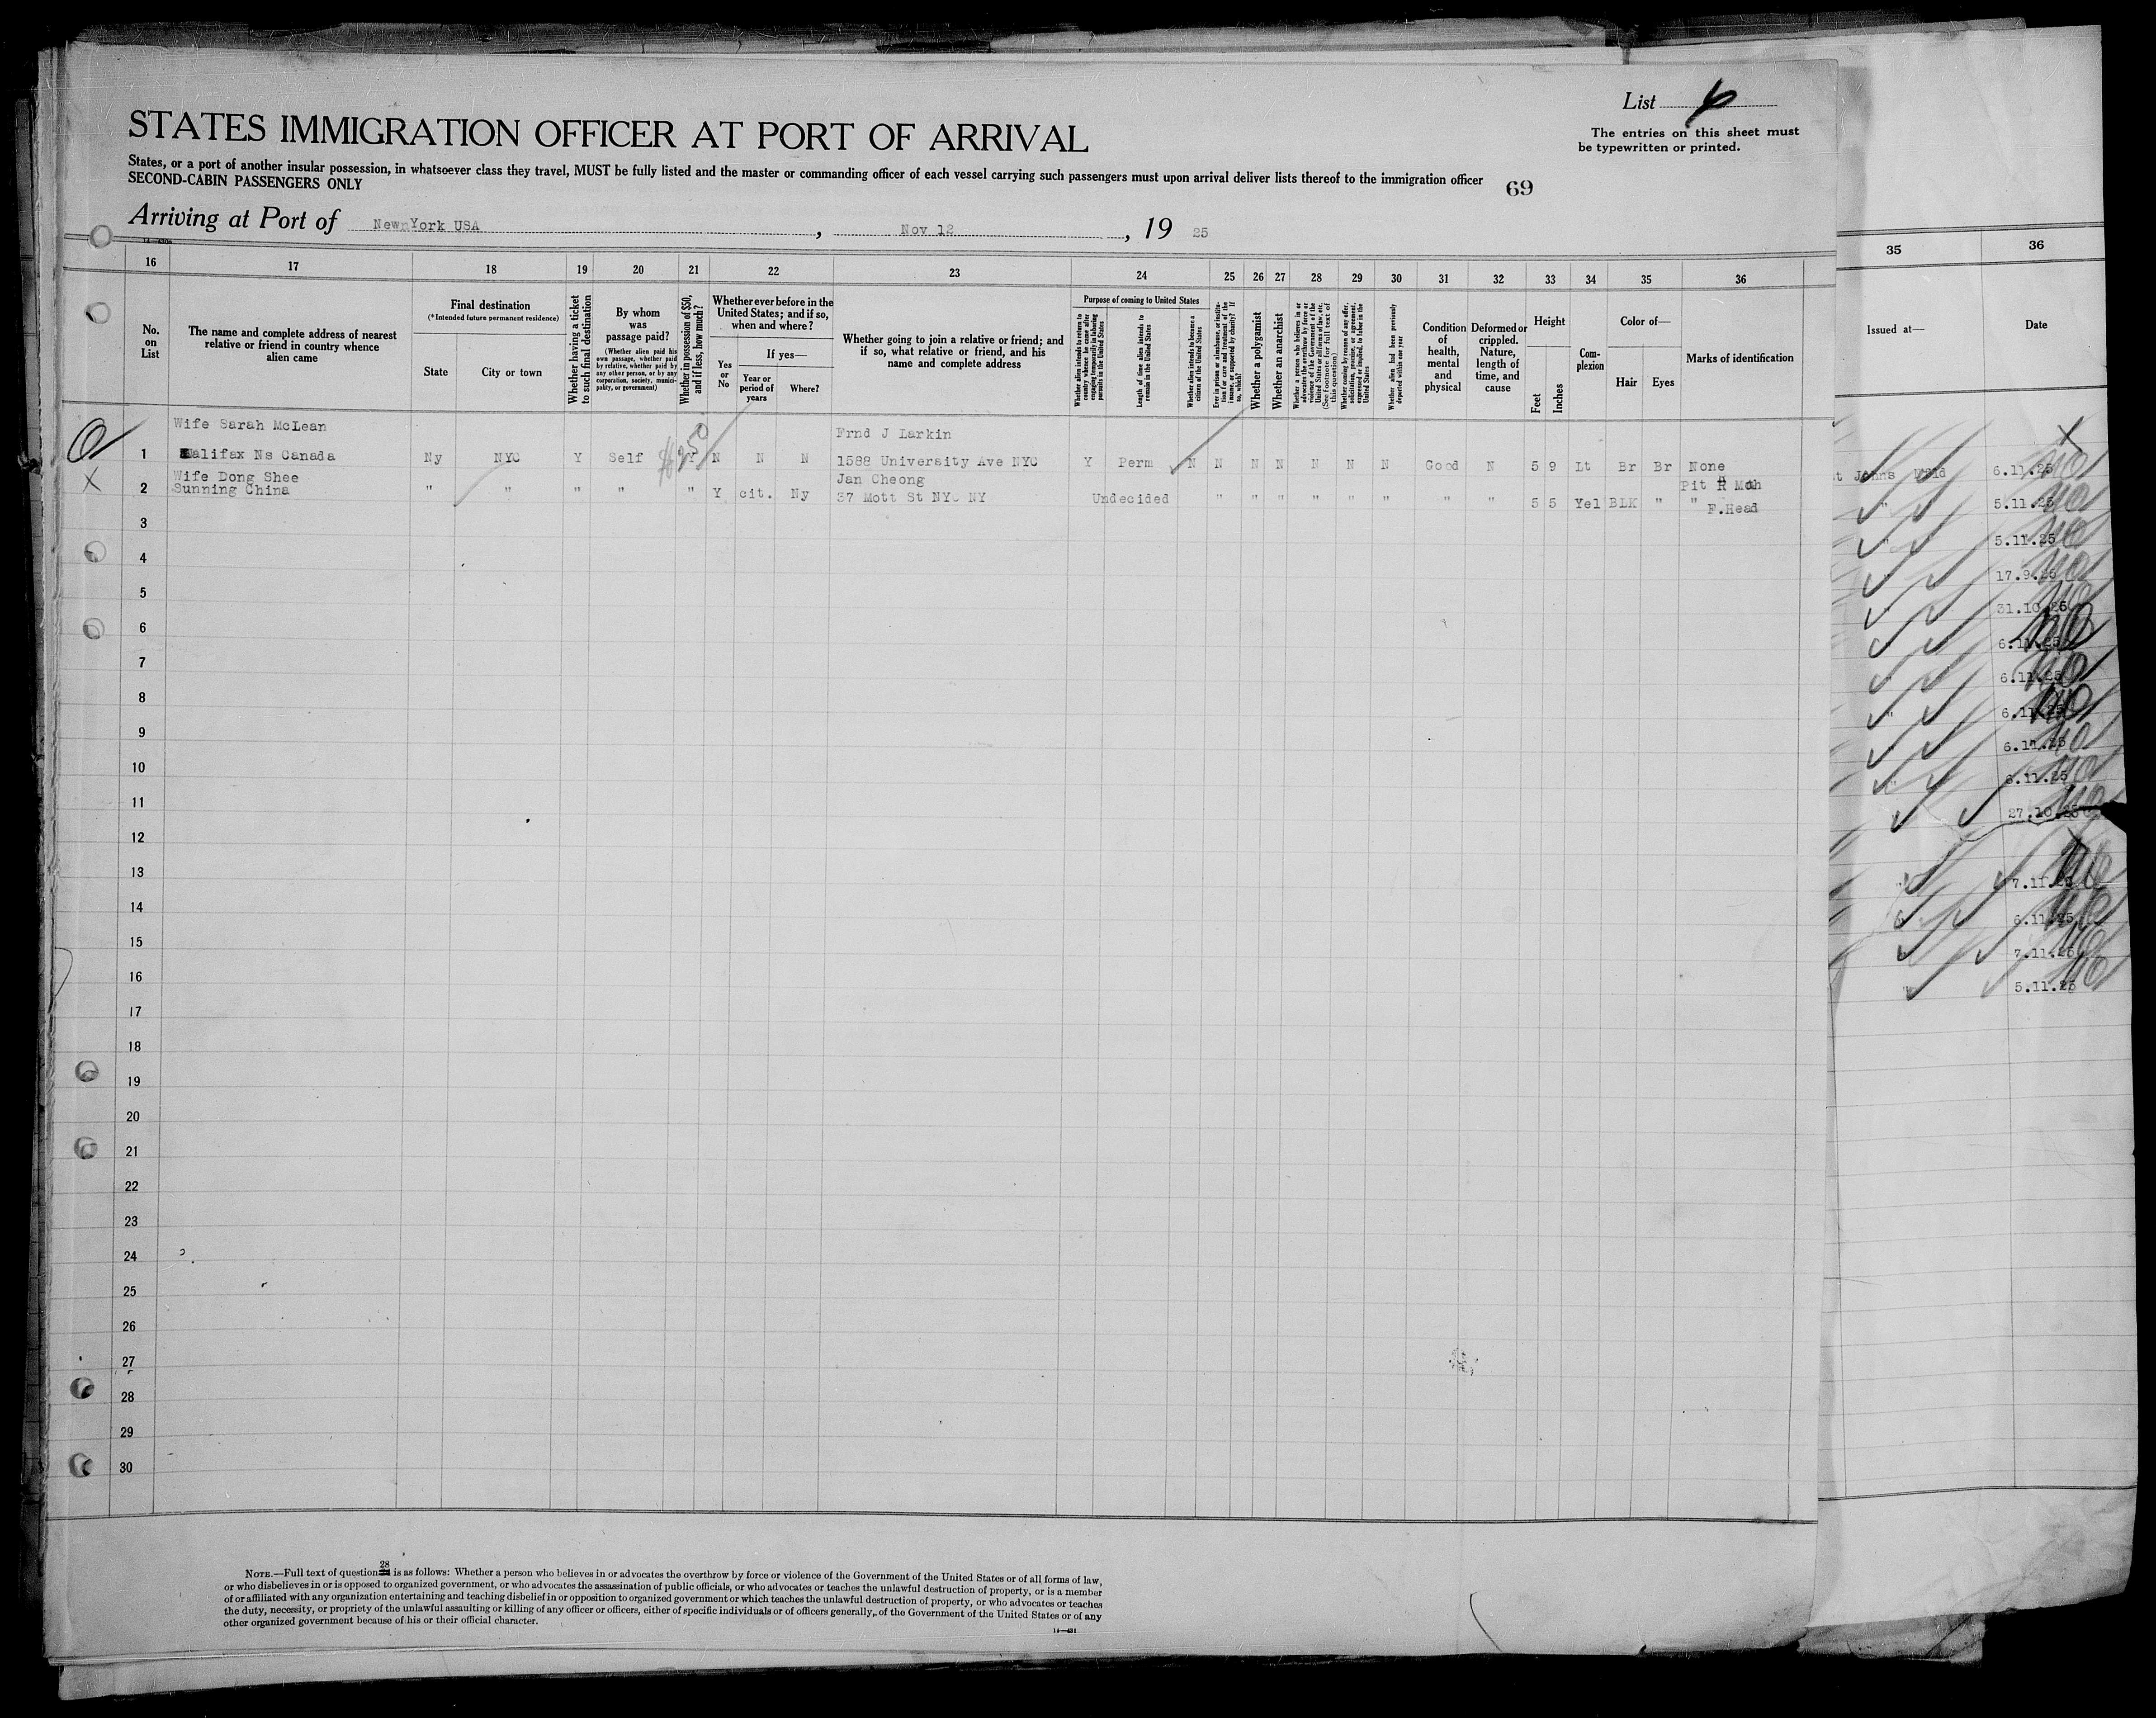 List 6
The entries on this sheet must
be typewritten or printed.
STATES IMMIGRATION OFFICER AT PORT OF ARRIVAL
States, or a port of another insular possession, in whatsoever class they travel, MUST be fully listed and the master or commanding officer of each vessel carrying such passengers must upon arrival deliver lists thereof to the immigration officer
SECOND-CABIN PASSENGERS ONLY
69
Arriving at Port of NewnYork USA, Nov 12, 19 25
16 17 18 19 20 21 22 23 24 25 26 27 28 29 30 31 32 33 34 35 36
No. on List
The name and complete address of nearest relative or friend in country whence alien came
Final destination
(*Intended future permanent residence)
State
City or town
Whether having a ticket to such final destination
By whom was passage paid?
(Whether alien paid his own passage, whether paid by relative, whether paid by any other person, or by any corporation, society, municipality, or government)
Whether in possession of $50, and if less, how much?
Whether ever before in the United States; and if so, when and where?
Yes or No
If yes—
Year or period of years
Where?
Whether going to join a relative or friend; and if so, what relative or friend, and his name and complete address
Purpose of coming to United States
Whether alien intends to return to country whence he came after engaging temporarily in laboring pursuits in the United States
Length of time alien intends to remain in the United States
Whether alien intends to become a citizen of the United States
Ever in prison or almshouse, or institution for care and treatment of the insane, or supported by charity? If so, which?
Whether a polygamist
Whether an anarchist
Whether a person who believes in or advocates the overthrow by force or violence of the Government of the United States or all forms of law, etc. (See footnote for full text of this question)
Whether coming by reason of any offer, solicitation, promise, or agreement, expressed or implied, to labor in the United States
Whether alien had been previously deported within one year
Condition of health, mental and physical
Deformed or crippled. Nature, length of time, and cause
Height
Feet
Inches
Complexion
Color of—
Hair
Eyes
Marks of identification
Wife Sarah McLean Frnd J Larkin
1 Halifax Ns Canada Ny NYC Y Self $250 N N N 1588 University Ave NYC Y Perm N N N N N N N Good N 5 9 Lt Br Br None
Wife Dong Shee Jan Cheong Pit R Mch
2 Sunning China " " " " " Y cit. Ny 37 Mott St NYC NY Undecided " " " " " " " " 5 5 Yel BLK " " F.Head
3
4
5
6
7
8
9
10
11
12
13
14
15
16
17
18
19
20
21
22
23
24
25
26
27
28
29
30
NOTE.—Full text of question 28 is as follows: Whether a person who believes in or advocates the overthrow by force or violence of the Government of the United States or of all forms of law,
or who disbelieves in or is opposed to organized government, or who advocates the assassination of public officials, or who advocates or teaches the unlawful destruction of property, or is a member
of or affiliated with any organization entertaining and teaching disbelief in or opposition to organized government or which teaches the unlawful destruction of property, or who advocates or teaches
the duty, necessity, or propriety of the unlawful assaulting or killing of any officer or officers, either of specific individuals or of officers generally, of the Government of the United States or of any
other organized government because of his or their official character.
14—431
35 36
Issued at— Date
t Johns Nfld 6.11.25
" 5.11.25
" 5.11.25
17.9.25
31.10.25
6.11.25
6.11.25
6.11.25
6.11.25
6.11.25
27.10.25
7.11.25
6.11.25
7.11.25
5.11.25